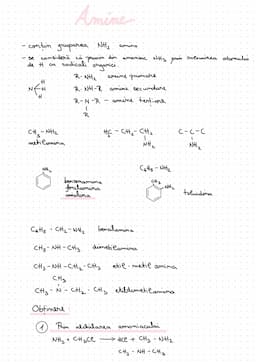 Amine
- conțin gruparea NH₂ amino
- se consideră că provin din amoniac NH₃ prin înlocuirea atomului
de H cu radicali organici
R-NH₂ amine primare
H
N-H
H
R-NH-R amine secundare
R-N-R - amine terțiare
R
CH₃-NH₂
metilamina
H₃C-CH₂-CH₂
NH₂
C-C-C
NH₂
C₆H₅-NH₂
NH₂
benzenamina
fenilamina
anilina
CH₃
NH₂
toluidina
C₆H₅-CH₂-NH₂ benzilamina
CH₃-NH-CH₃ dimetilamina
CH₃-NH-CH₂-CH₃ etil-metil amina
CH₃
CH₃-N-CH₂-CH₃ etildimetilamina
Obținere:
1 Prin alchilarea amoniacului
NH₃ + CH₃Cl → HCl + CH₃-NH₂
CH₃-NH-CH₃